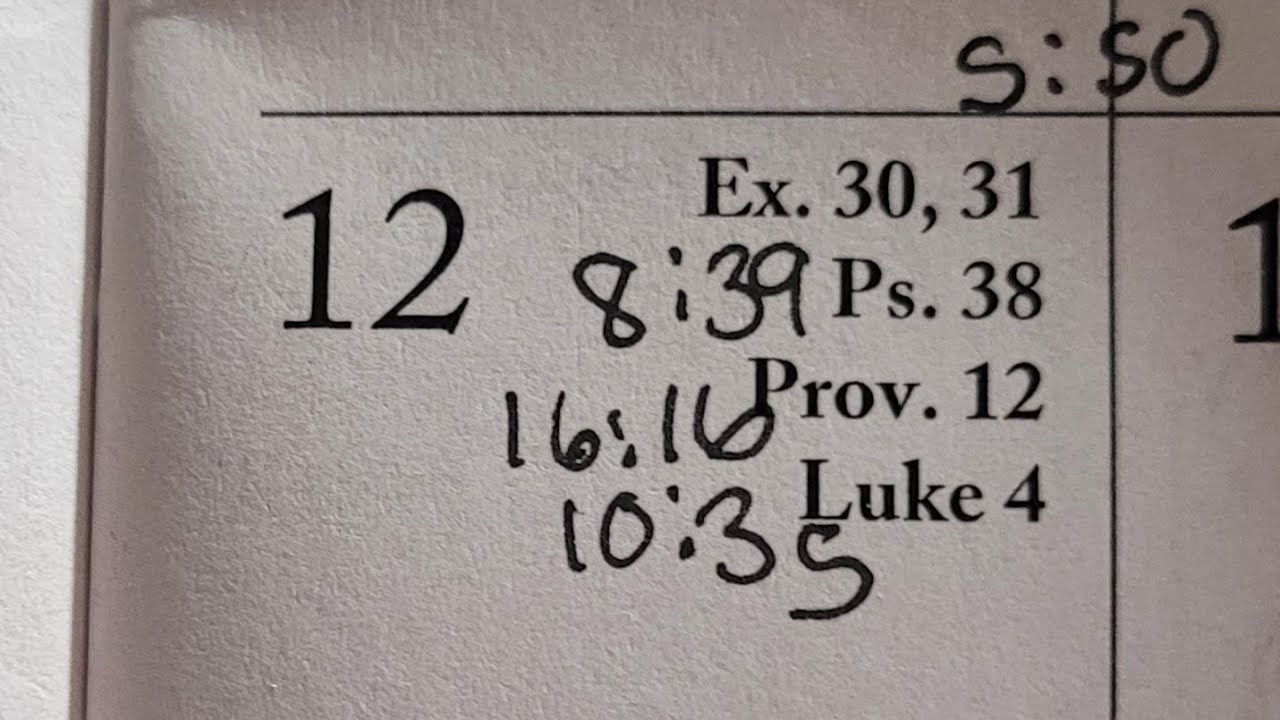 5:50
12 Ex. 30, 31
8:39 Ps. 38
Prov. 12
16:16
Luke 4
10:35
1